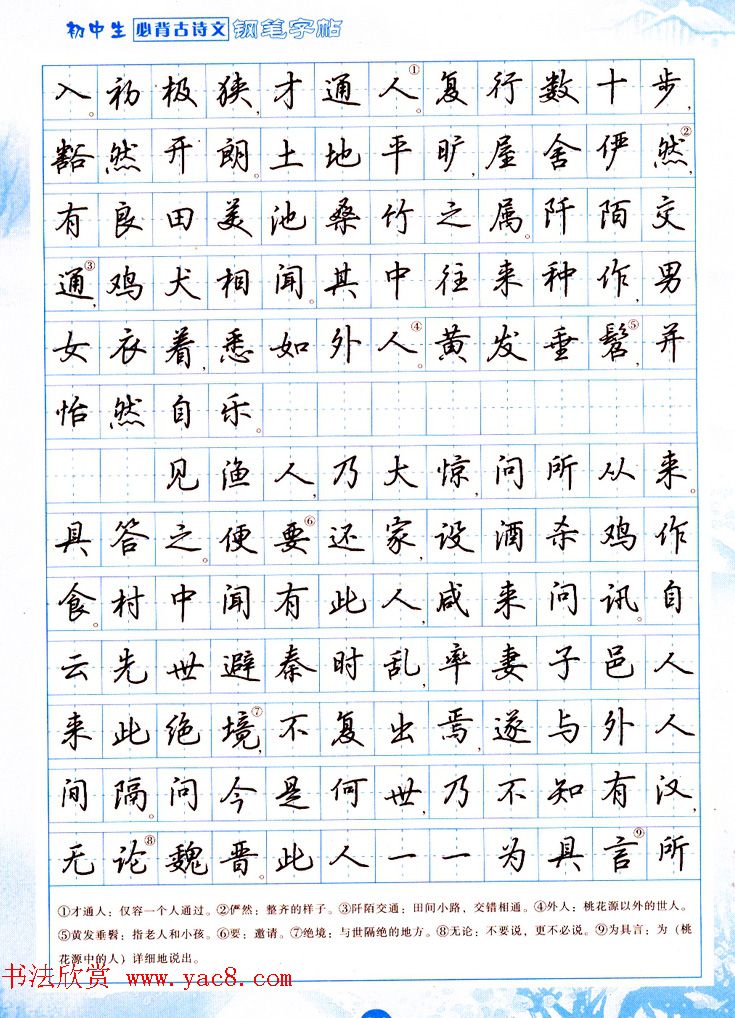 初中生 必背古诗文 钢笔字帖
入。初极狭，才通人①。复行数十步，
豁然开朗。土地平旷，屋舍俨然②，
有良田美池桑竹之属。阡陌交
通③，鸡犬相闻。其中往来种作，男
女衣着，悉如外人④。黄发垂髫⑤，并
怡然自乐。
见渔人，乃大惊，问所从来。
具答之。便要⑥还家，设酒杀鸡作
食。村中闻有此人，咸来问讯。自
云先世避秦时乱，率妻子邑人
来此绝境⑦，不复出焉，遂与外人
间隔。问今是何世，乃不知有汉，
无论⑧魏晋。此人一一为具言⑨所
①才通人：仅容一个人通过。②俨然：整齐的样子。③阡陌交通：田间小路，交错相通。④外人：桃花源以外的世人。
⑤黄发垂髫：指老人和小孩。⑥要：邀请。⑦绝境：与世隔绝的地方。⑧无论：不要说，更不必说。⑨为具言：为（桃
花源中的人）详细地说出。
书法欣赏 www.yac8.com